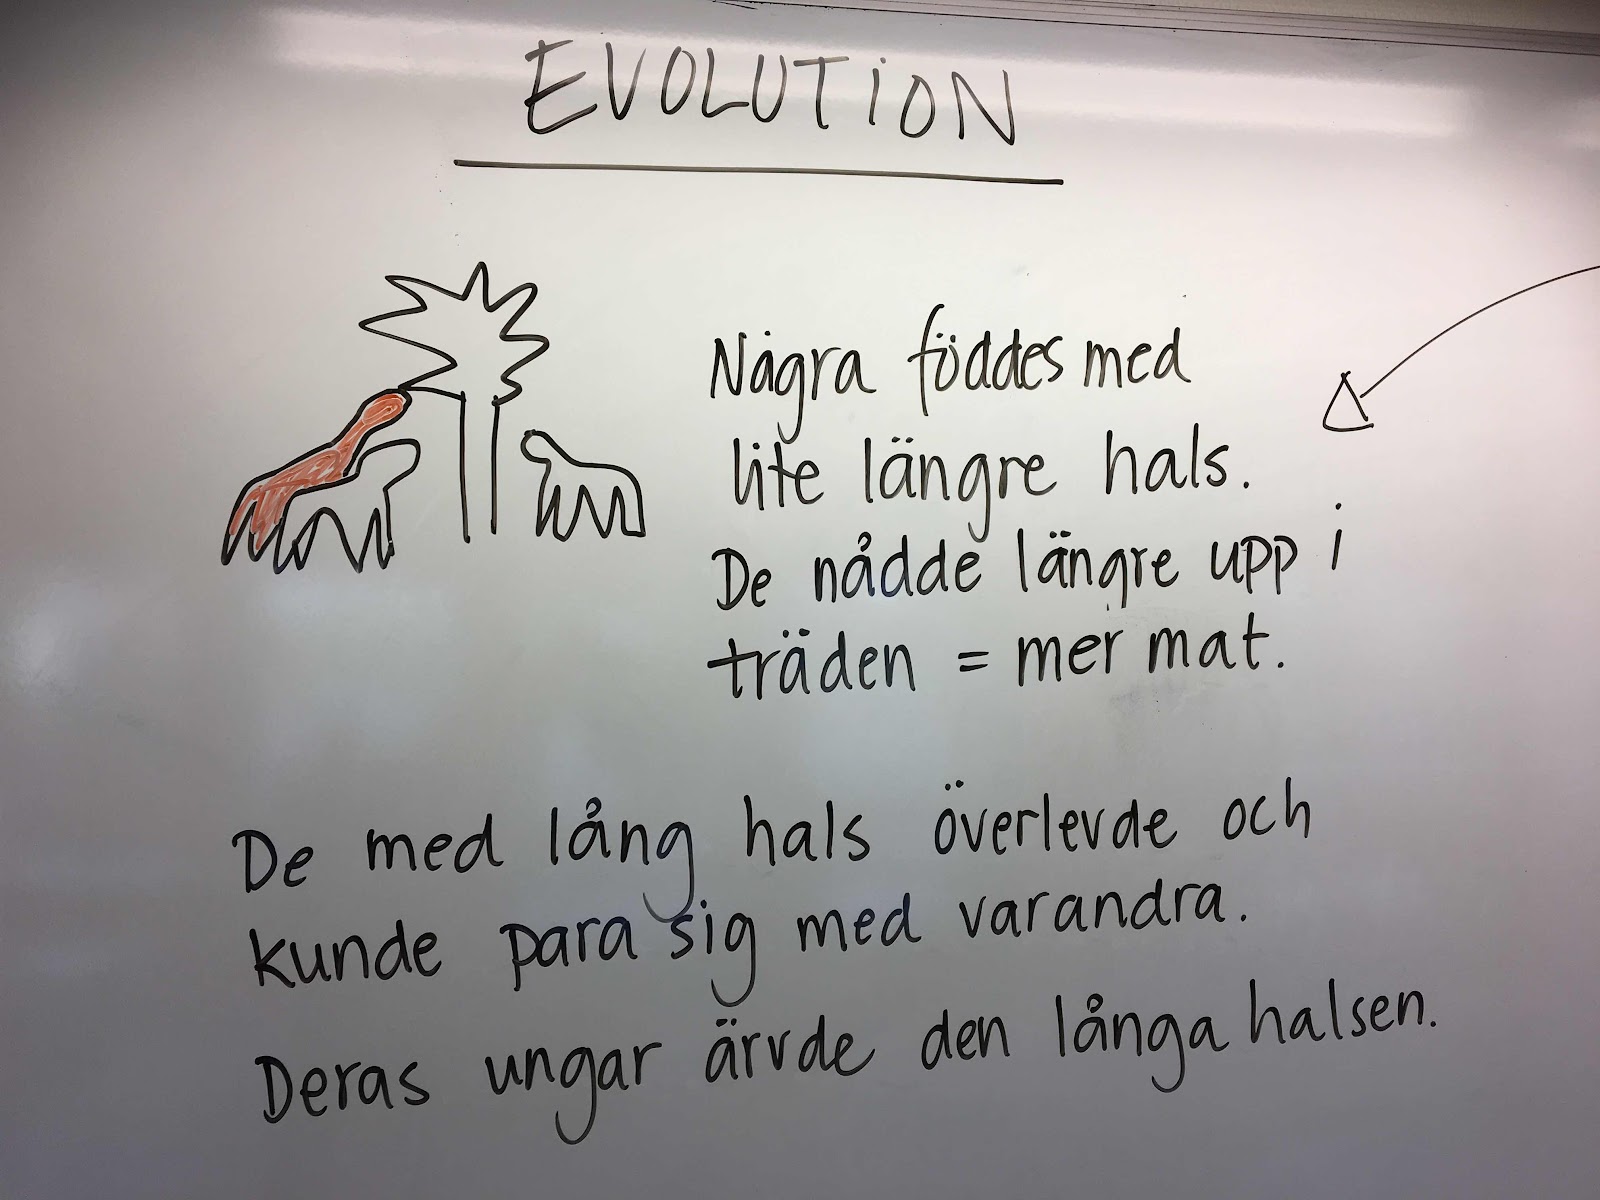 EVOLUTION
Några föddes med
lite längre hals.
De nådde längre upp i
träden = mer mat.
De med lång hals överlevde och
kunde para sig med varandra.
Deras ungar ärvde den långa halsen.